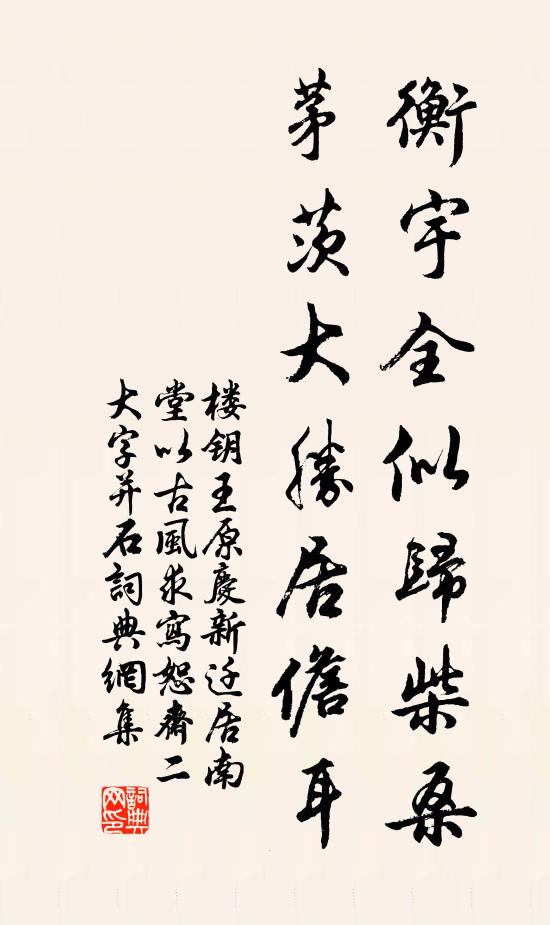 衡宇全似歸柴桑
茅茨大勝居儋耳
楼钥王原慶新迁居南
堂以古風求寫恕齋二
大字并石詞典網集
詞典网印